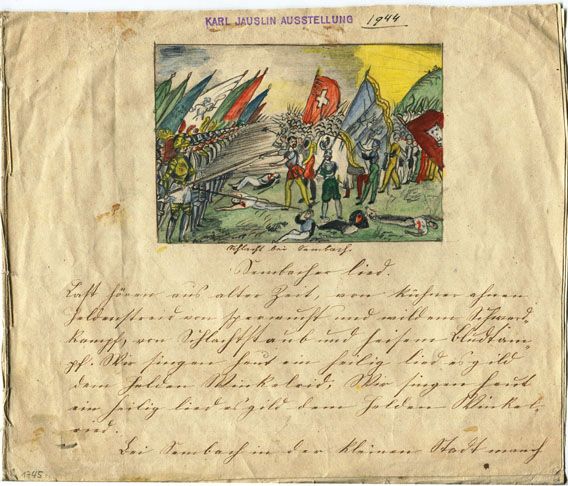 KARL JAUSLIN AUSSTELLUNG 1944
Schlacht bei Sembach.
Sembacher lied.
Laßt hören aus alter Zeit, von kühner ahnen
Heldenstreid von sperwucht und wildem Schwerd-
kampf, von Schlachtstaub und heisem Bludtäm-
pf. Wir singen heut ein heilig lied es gild
dem Helden Winkelrid; Wir singen heut
ein heilig lied es gild dem Helden Winkel-
ried.
Bei Sembach in der kleinen Stadt manch
1745